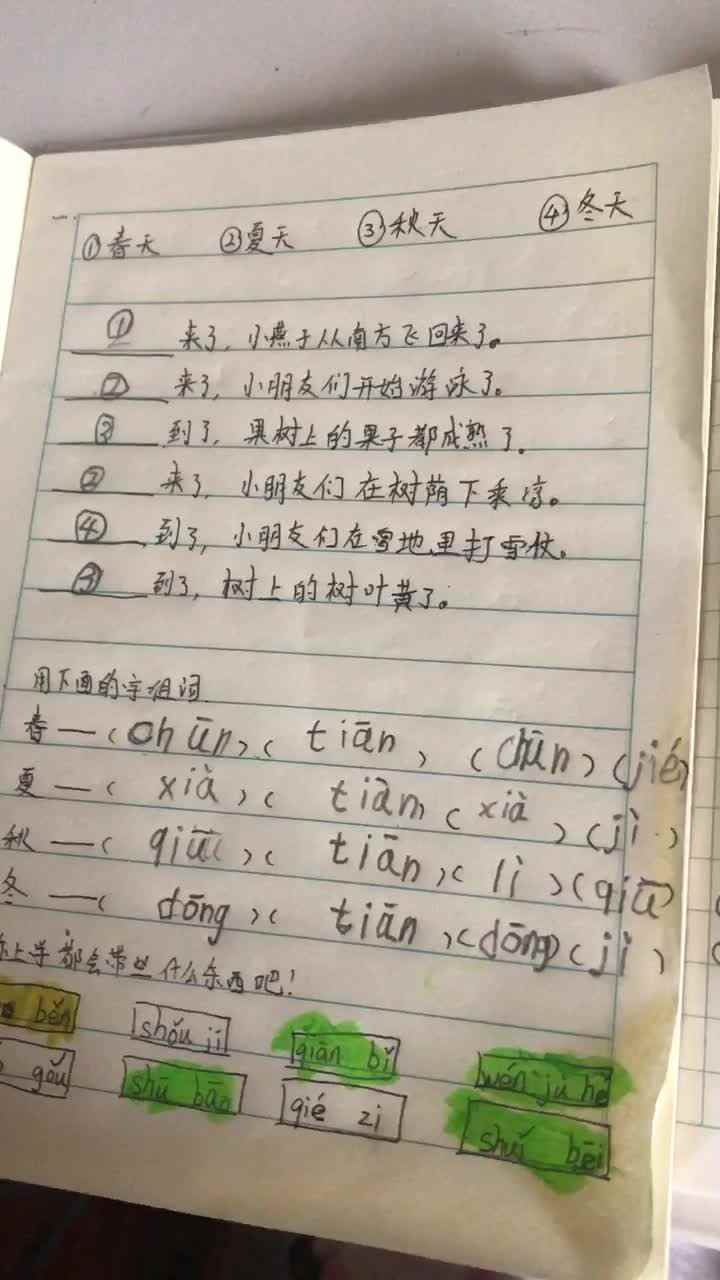 ①春天 ②夏天 ③秋天 ④冬天
① 来了，小燕子从南方飞回来了。
② 来了，小朋友们开始游泳了。
③ 到了，果树上的果子都成熟了.
② 来了，小朋友们在树荫下乘凉。
④ 到了，小朋友们在雪地里打雪仗。
③ 到了，树上的树叶黄了。
用下面的字组词
春—（chūn）（tiān）（chūn）（jié）
夏—（xià）（tiān（xià）（jì）
秋—（qiū）（tiān）（lì）（qiū）
冬—（dōng）（tiān）（dōng）（jì）
你上学都会带些什么东西吧！
běn shǒu jī qiān bǐ wén jù hé
gǒu shū bāo qié zi shuǐ bēi